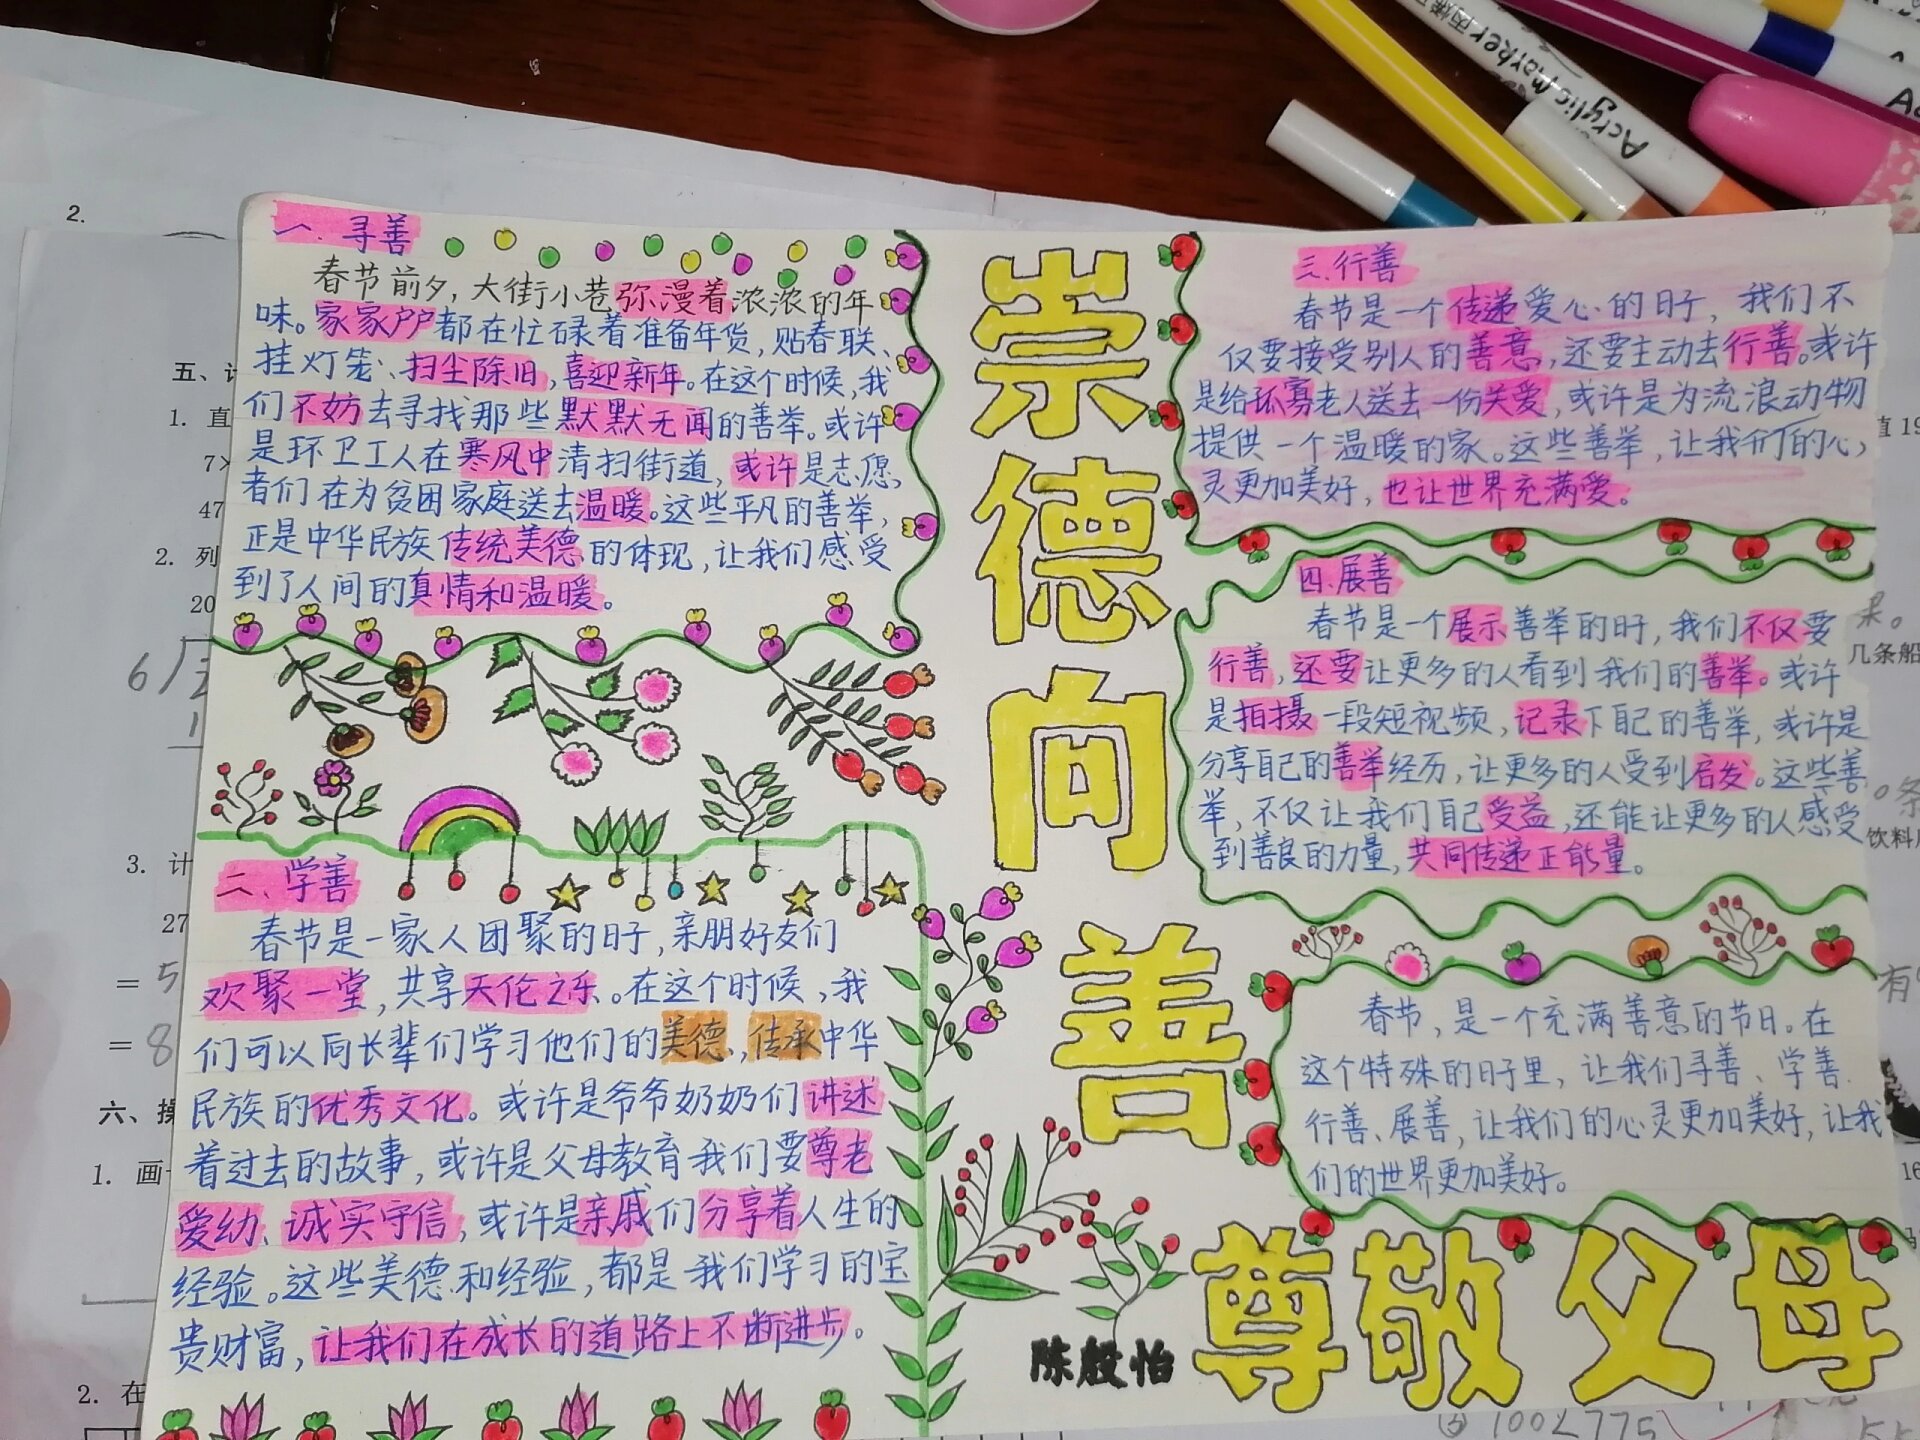 一、寻善
春节前夕，大街小巷弥漫着浓浓的年
味。家家户户都在忙碌着准备年货，贴春联、
挂灯笼、扫尘除旧，喜迎新年。在这个时候，我
们不妨去寻找那些默默无闻的善举。或许
是环卫工人在寒风中清扫街道，或许是志愿
者们在为贫困家庭送去温暖。这些平凡的善举，
正是中华民族传统美德的体现，让我们感受
到了人间的真情和温暖。
二、学善
春节是一家人团聚的日子，亲朋好友们
欢聚一堂，共享天伦之乐。在这个时候，我
们可以向长辈们学习他们的美德，传承中华
民族的优秀文化。或许是爷爷奶奶们讲述
着过去的故事，或许是父母教育我们要尊老
爱幼、诚实守信，或许是亲戚们分享着人生的
经验。这些美德和经验，都是我们学习的宝
贵财富，让我们在成长的道路上不断进步。
崇德向善
三、行善
春节是一个传递爱心的日子，我们不
仅要接受别人的善意，还要主动去行善。或许
是给孤寡老人送去一份关爱，或许是为流浪动物
提供一个温暖的家。这些善举，让我们的心
灵更加美好，也让世界充满爱。
四、展善
春节是一个展示善举的日子，我们不仅要
行善，还要让更多的人看到我们的善举。或许
是拍摄一段短视频，记录下自己的善举，或许是
分享自己的善举经历，让更多的人受到启发。这些善
举，不仅让我们自己受益，还能让更多的人感受
到善良的力量，共同传递正能量。
春节，是一个充满善意的节日。在
这个特殊的日子里，让我们寻善、学善、
行善、展善，让我们的心灵更加美好，让我
们的世界更加美好。
尊敬父母
陈殷怡
Acrylic Marker
2.
五、计
1. 直
47
2. 列
20
3. 计
27
= 5
= 8
六、操
1. 画
2. 在
直 19
果。
几条船
。条
饮料
有
16
100<775